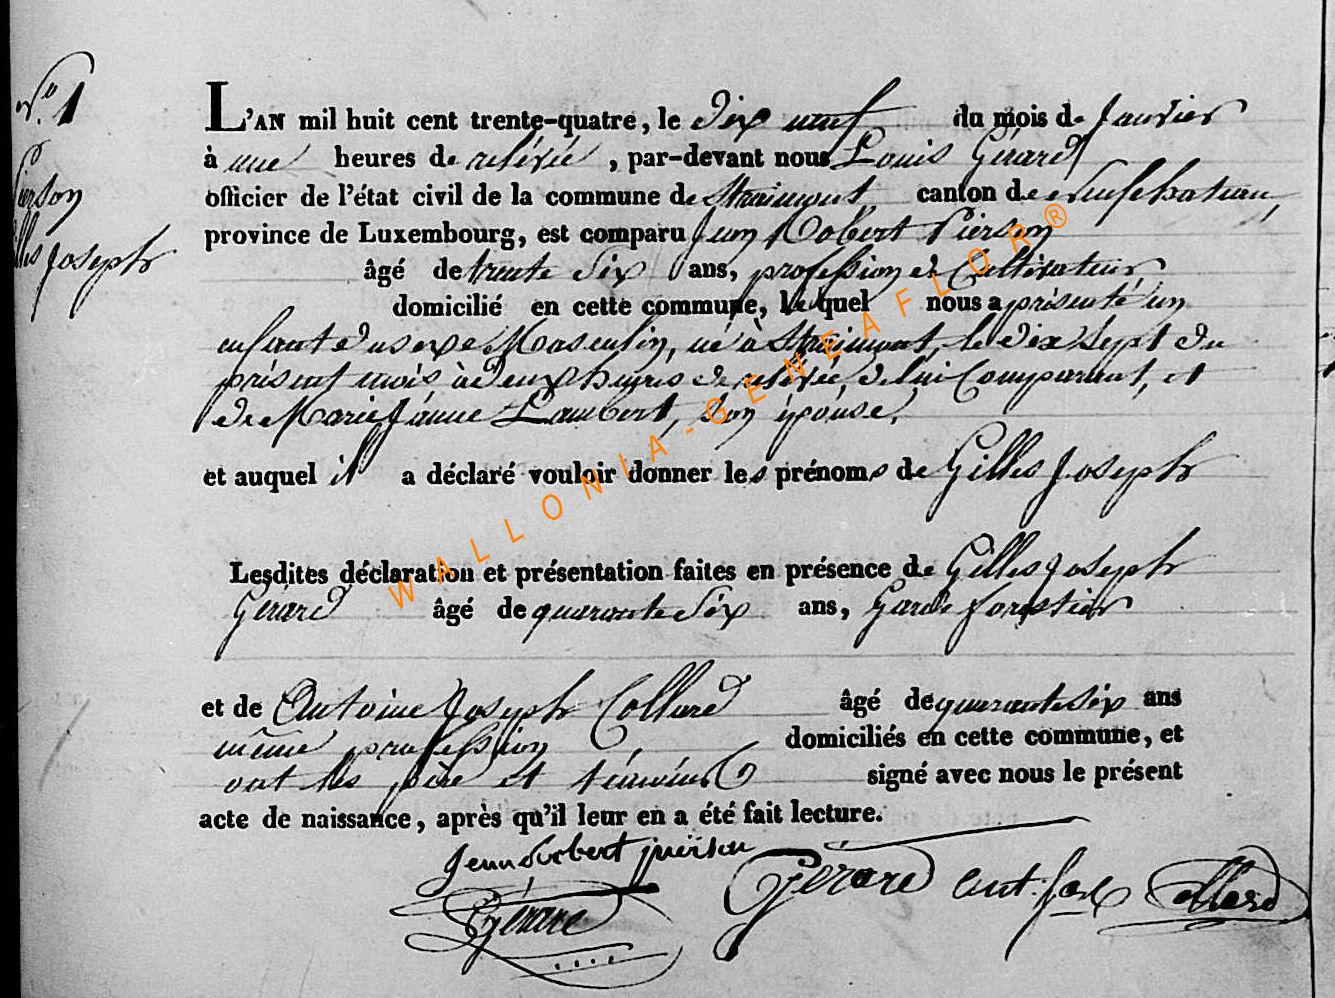 N.º 1
Pierson
Gilles Joseph
L'AN mil huit cent trente-quatre, le dix neuf du mois de Janvier
à une heures de relévée, par-devant nous Louis Gérard
officier de l'état civil de la commune de Straimont canton de Neufchateau,
province de Luxembourg, est comparu Jean Robert Pierson
âgé de trente six ans, profession de Cultivateur
domicilié en cette commune, le quel nous a présenté un
enfant du sexe Masculin, né à Straimont, le dix sept du
présent mois à deux heures de relévée, de lui Comparant, et
de Marie Jeanne Lambert, son épouse,
et auquel il a déclaré vouloir donner les prénoms de Gilles Joseph
Lesdites déclaration et présentation faites en présence de Gilles Joseph
Gérard âgé de quarante six ans, Garde forestier
et de Antoine Joseph Collard âgé de quarante six ans
même profession domiciliés en cette commune, et
ont les père et témoins signé avec nous le présent
acte de naissance, après qu'il leur en a été fait lecture.
Jean Robert pierson
Gérard ant. Jos Collard
LGérard
WALLONIA-GENEAFLOR®